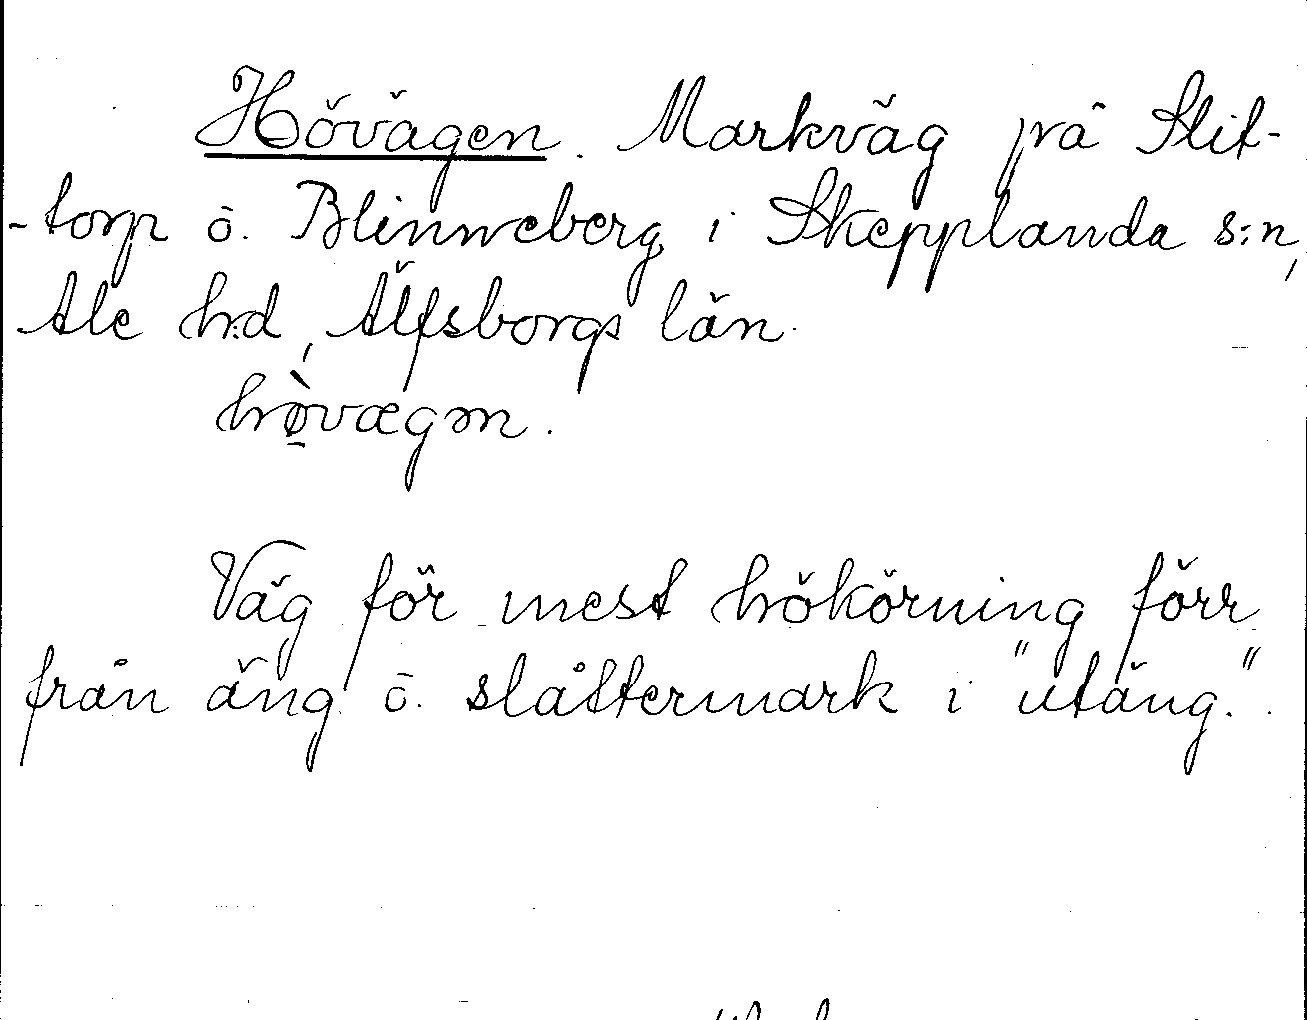 Hövägen. Markväg på Slit-
-torp ō. Blinneberg i Skepplanda s:n,
Ale h:d, Älfsborgs län.
hø̀vægən.
Väg för mest hökörning förr
från äng ō. slåttermark i "utäng."